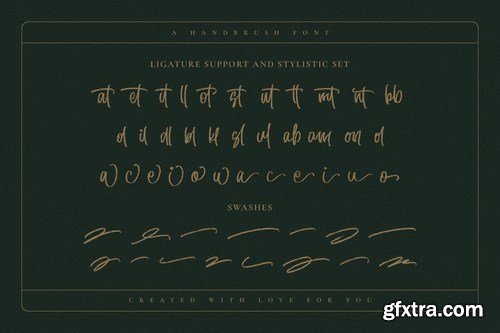 A HANDBRUSH FONT
LIGATURE SUPPORT AND STYLISTIC SET
at et it ll ot st ut tt mt nt bb
d il dl bl kl sl ul ab am on d
a c e i o u w a c e i u o
SWASHES
CREATED WITH LOVE FOR YOU
gfxtra.com